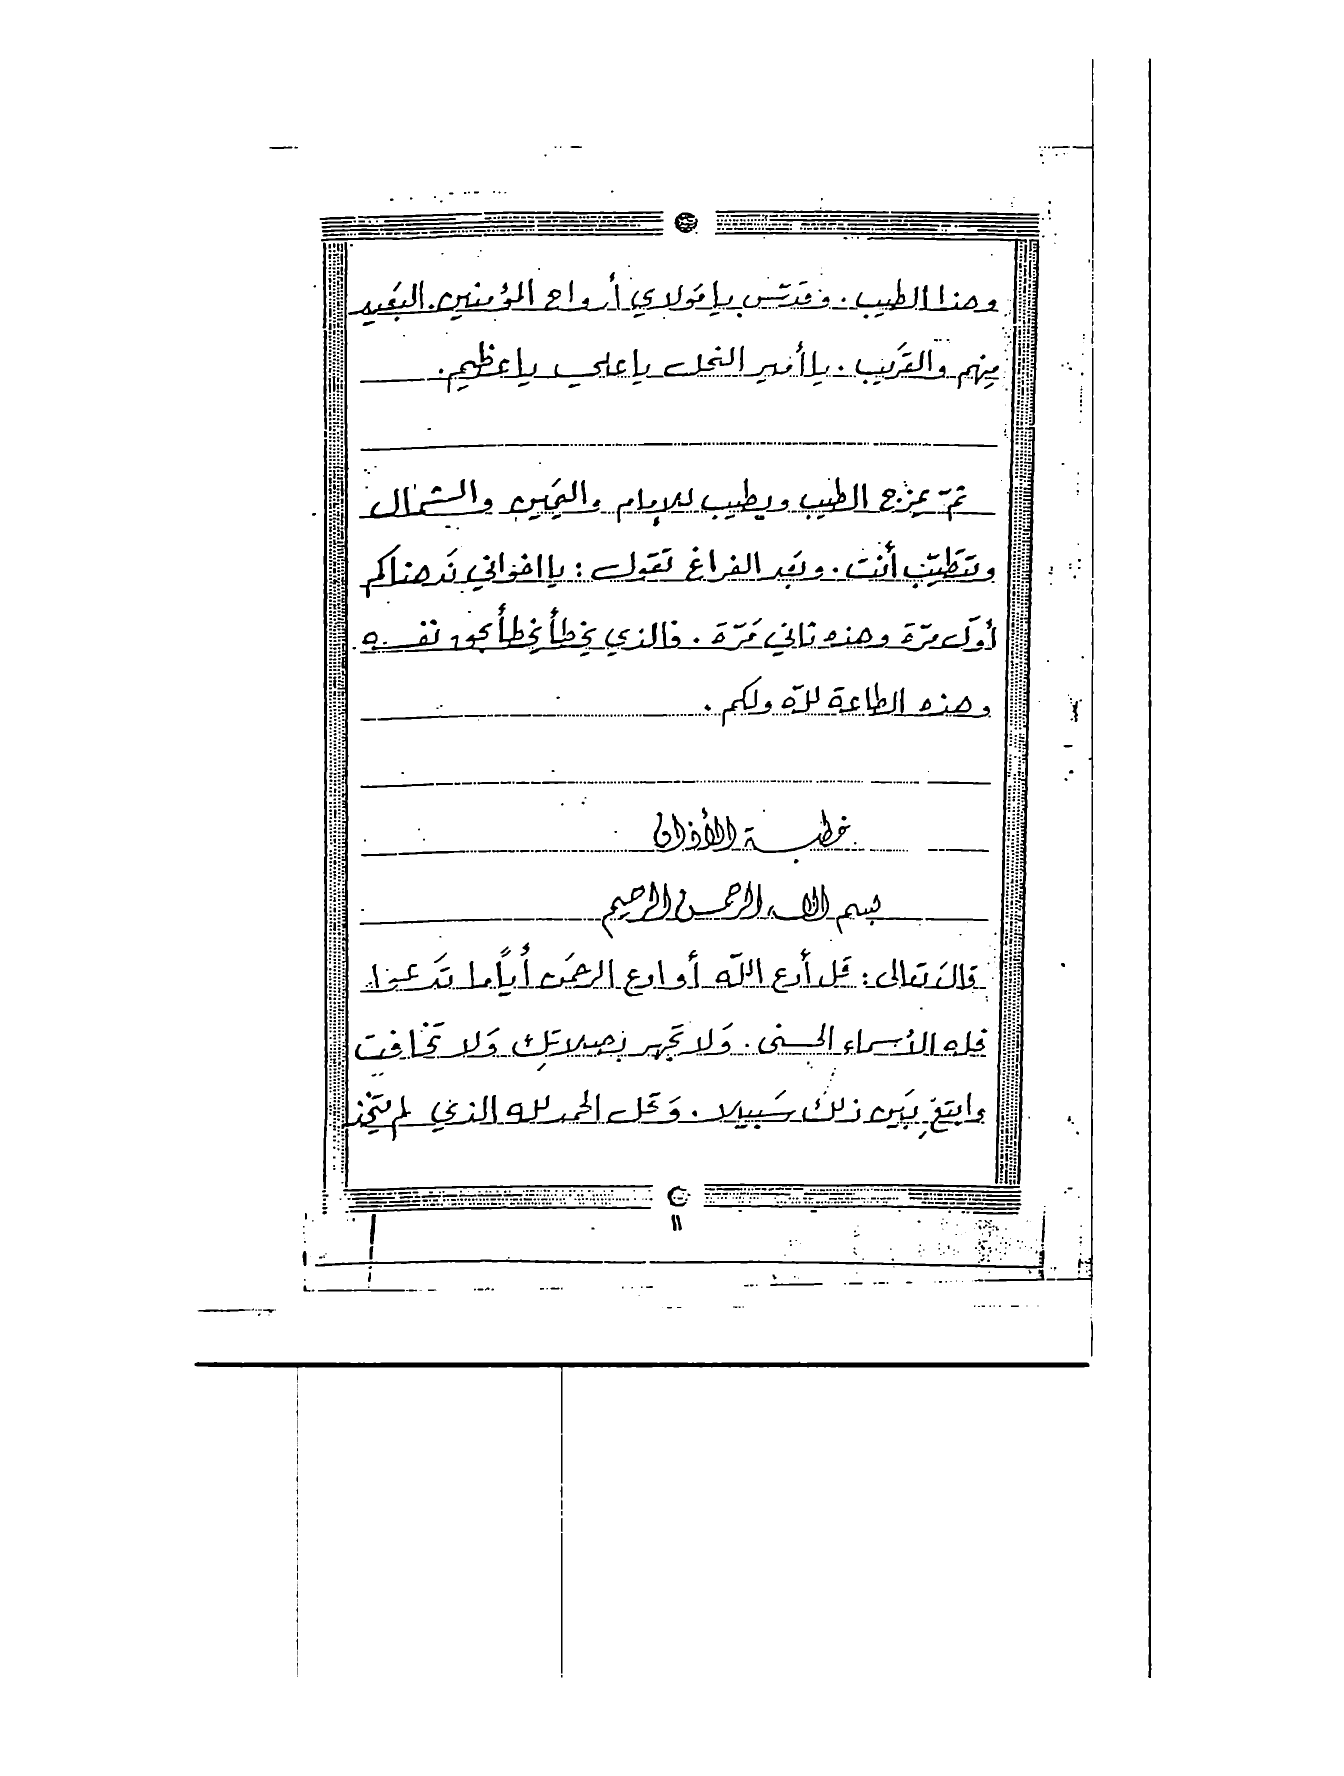 وهذا الطيب. وقدّس يا مَولاي أرواح المؤمنين. البَعيد
مِنهم والقَريب. يا أمير النحل يا علي يا عظيم.
ثمّ يمزج الطيب ويطيب للإمام واليَمين والشمال
وتتَطَيّب أنت. وبَعد الفراغ تَقول: يا اخواني نَدهناكم
أوّل مرّة وهذه ثاني مَرّة. فالذي يخطأ يخطأ بحق نفسه
وهذه الطاعة للّه ولكم.
خطبة الأذان
بسم الله الرحمن الرحيم
قالَ تعالى: قَل أدع اللّه أو ادع الرحمَن أياًما تَدعوا
فله الأسماء الحسنى. وَلا تَجهر بصلاتِك وَلا تخافِت
وابتغِ بَين ذلك سَبيلا. وَقل الحمد لله الذي لم يتَّخذ
١١